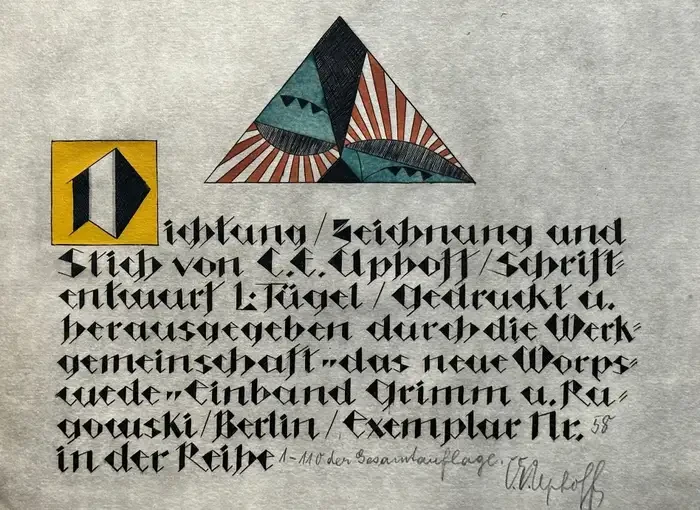 Dichtung / Zeichnung und
Stich von C. E. Uphoff / Schrift=
entwurf L. Tügel / Gedruckt u.
herausgegeben durch die Werk=
gemeinschaft „das neue Worps=
wede„ Einband Grimm u. Ra=
gowski / Berlin / Exemplar Nr. 58
in der Reihe 1-110 der Gesamtauflage.
C. E. Uphoff